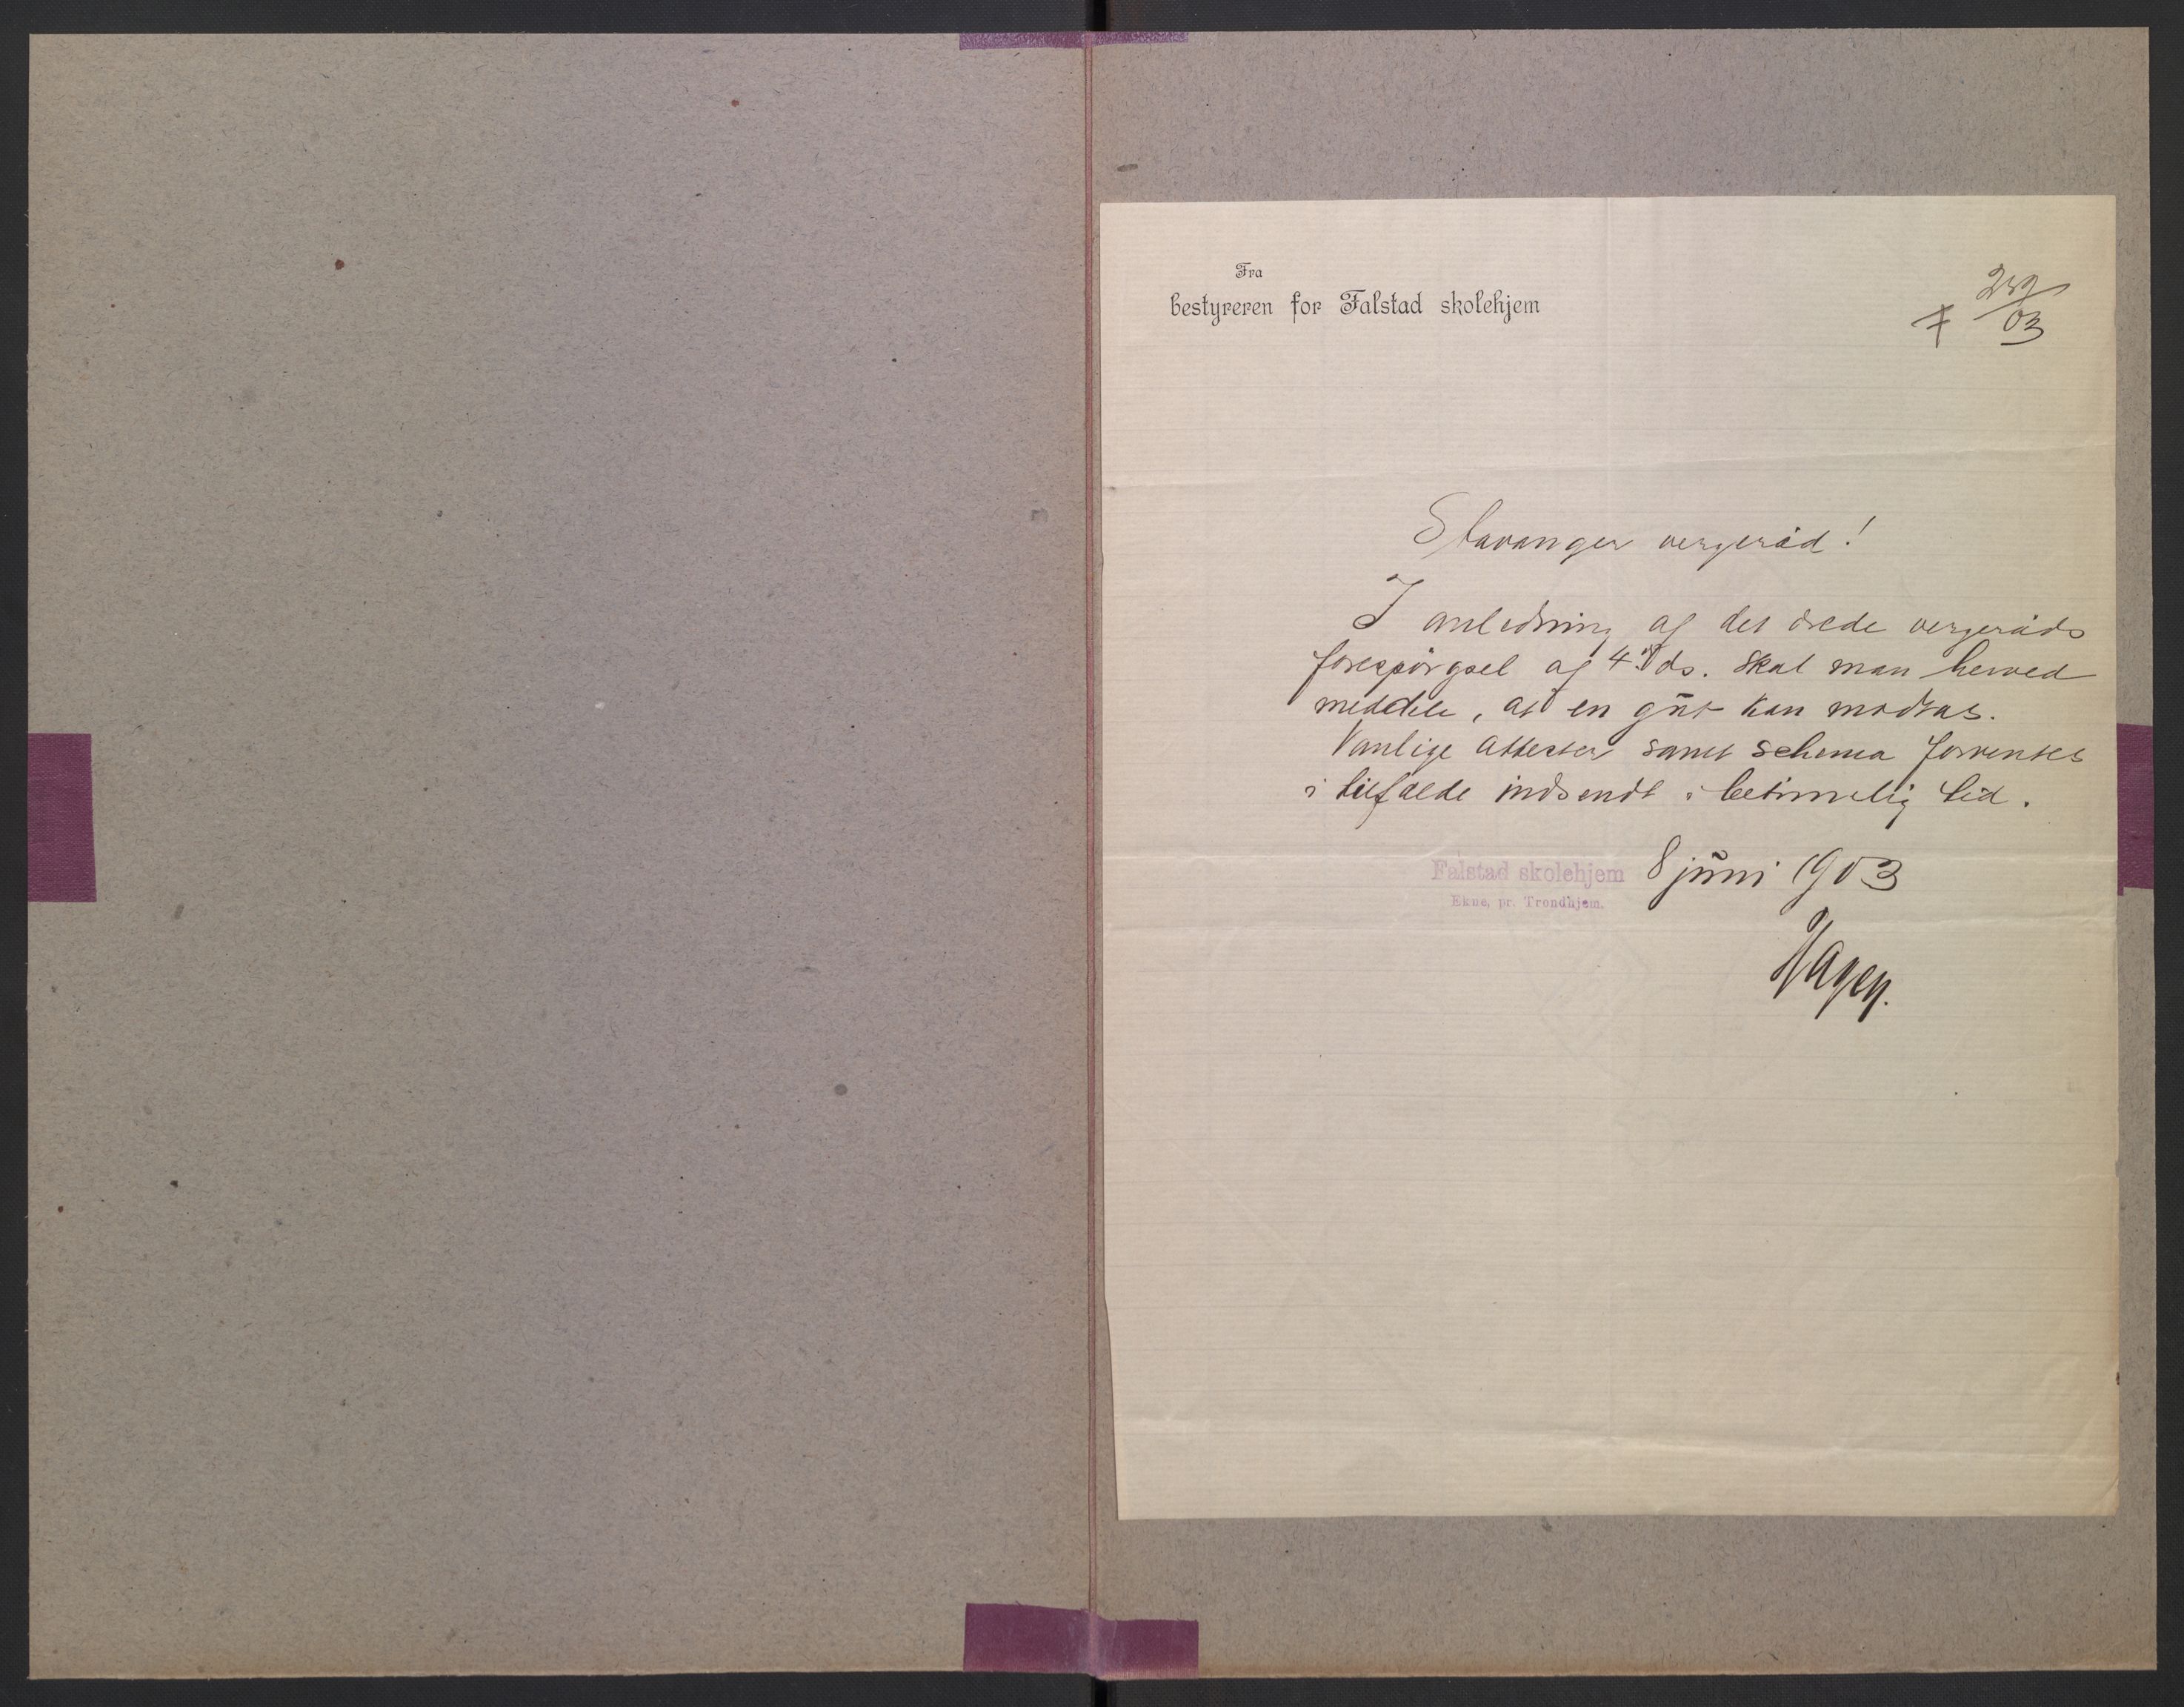 Fra
bestyreren for Falstad skolehjem
Stavanger vergeråd!
I anledning af det ærede vergeråds
forespörgsel af 4. ds. skal man herved
meddele, at en gŭt kan modtas.
Vanlige attester samt schema forventes
i tilfælde indsendt i betimelig tid.
Falstad skolehjem 8 jŭni 1903
Ekne, pr. Trondhjem.
Hagen.